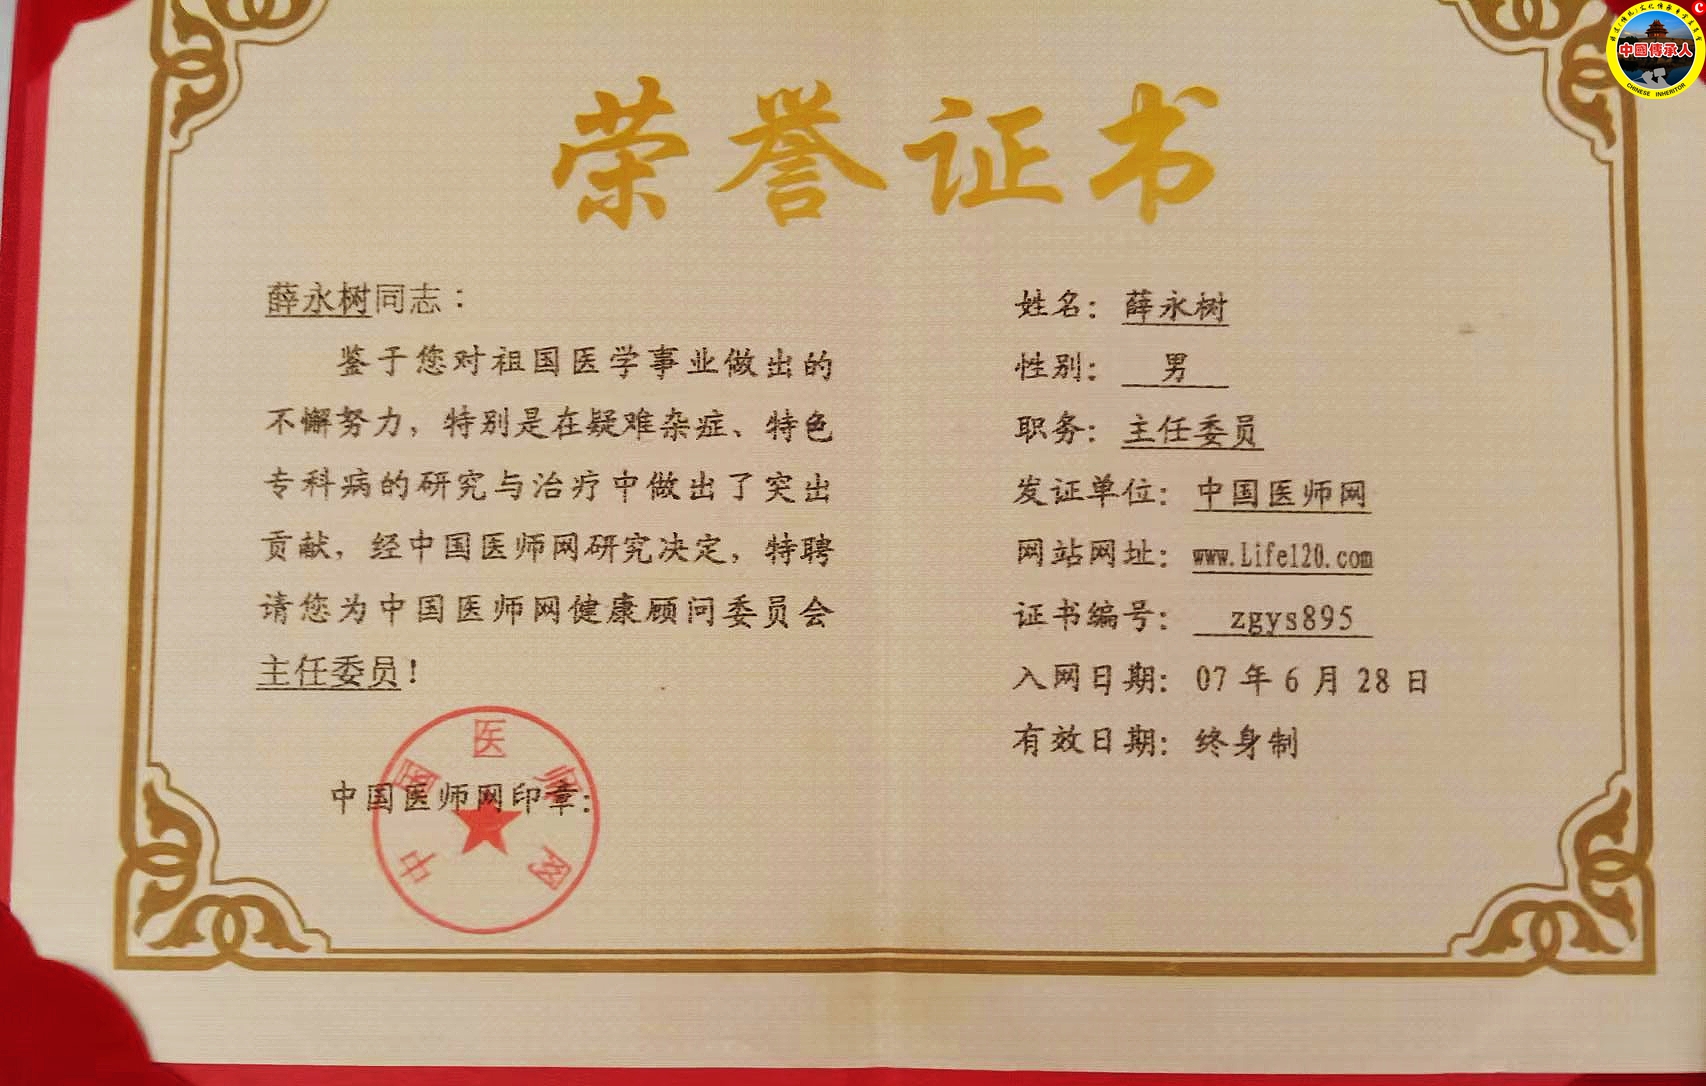 荣誉证书
薛永树同志：
鉴于您对祖国医学事业做出的
不懈努力，特别是在疑难杂症、特色
专科病的研究与治疗中做出了突出
贡献，经中国医师网研究决定，特聘
请您为中国医师网健康顾问委员会
主任委员！
中国医师网印章：
中国医师网
姓名：薛永树
性别：男
职务：主任委员
发证单位：中国医师网
网站网址：www.Life120.com
证书编号：zgys895
入网日期：07年6月28日
有效日期：终身制
中國傳承人
CHINESE INHERITOR